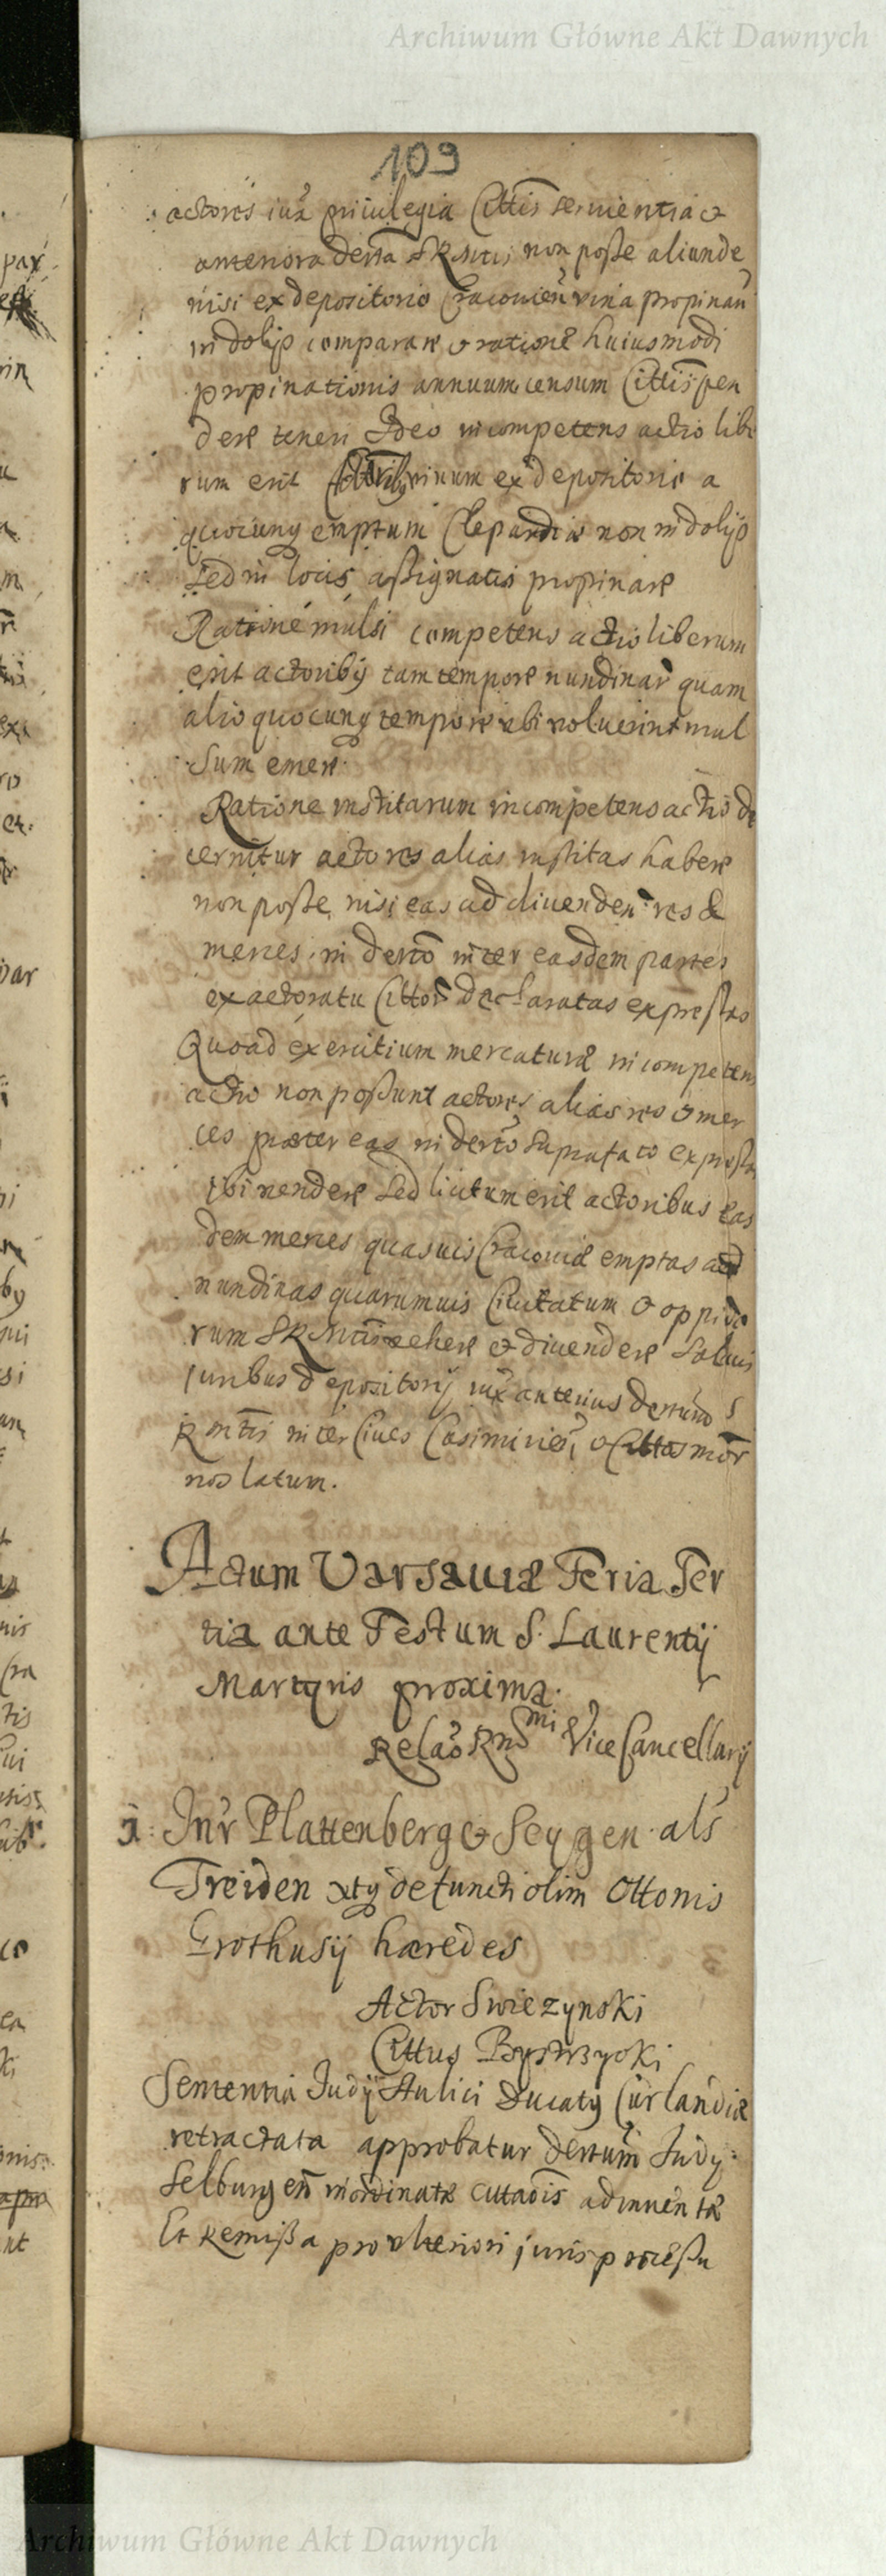 Archiwum Główne Akt Dawnych
109
actores iux priuilegia Cittis seruientia et
anteriora derta SRMtis non posse aliunde
nisi ex depositorio Cracouien vina propinan
in dolijs comparare et rationē huiusmodi
propinationis annuum censum Cittis pen
dere teneri Ideo incompetens actio libe
rum erit vinum ex depositorio a
quocunq emptum Clepardiæ non in dolijs
sed in locis assignatis propinare
Rationē mulsi competens actio liberum
erit actoribq tam tempore nundinar quam
alio quocunq tempore ubi voluerint mul
sum emere
Ratione institarum incompetens actio de
cernitur actores alias institas habere
non posse nisi eas ad diuenden res &
merces in derto inter easdem partes
ex actoratu Cittor declaratas expressas
Quoad exercitium mercaturæ incompetens
actio non possunt actores alias res et mer
ces præter eas in derto suprafato expressas
ibi vendere sed licitum erit actoribus eas
dem merces quasuis Cracouiæ emptas ad
nundinas quarumuis Ciuitatum et oppido
rum SRMtis vehere et diuendere saluis
iuribus depositorij iux anterius dertum S
RMtis inter Ciues Casimirien et Cittos
nos latum.
Actum Varsauiæ Feria Ter
tia ante Festum S. Laurentij
Martyris proxima.
Relao Rndmi Vice Cancellarij
1: Intr Plattenberg et Seygen als
Treiden xtq defuncti olim Ottonis
Grothusij hæredes
Actor Swiezynski
Cittus Bystrzycki
Sententia Judij Aulici Ducatq Curlandiæ
retractata approbatur dertum Judij
Selburgen inordinatæ cittaois adinuentæ
Et remissa pro vlteriori juris processu
Archiwum Główne Akt Dawnych